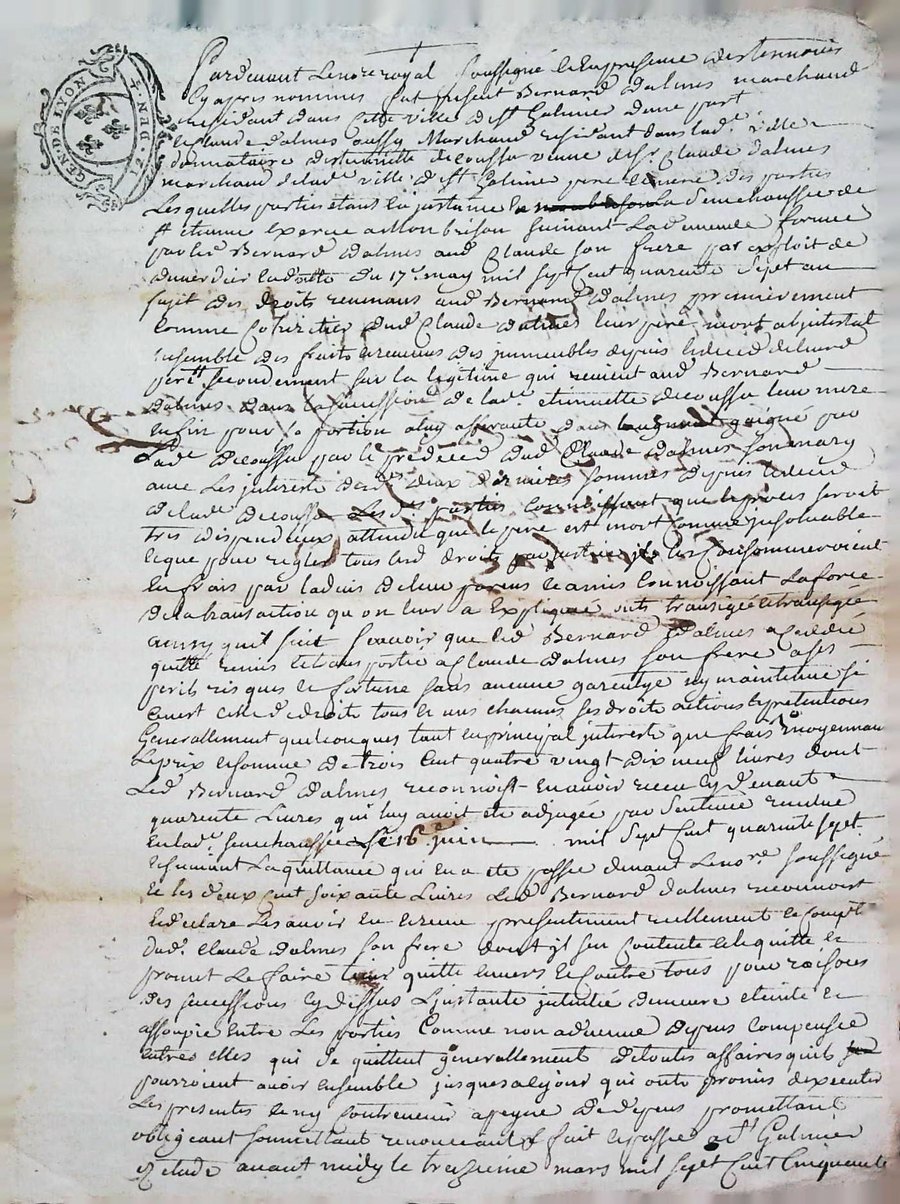 GEN. DE LYON
12. DEN. 4.
Pardevant Le no.re royal soussigné et en presence des temoins
cy apres nommes fut present Bernard Dalmes marchand
residant dans cette ville de st Galmier d'une part
et Claude Dalmes aussy Marchand residant dans lad.e ville
donnataire d'etiennette decousse veuve de sr Claude Dalmes
marchand de lad.e ville de st Galmier pere et mere des parties
Lesquelles parties etant en justance en la senechaussée de
st etienne exercée a Montbrison suivant La demende formée
par led. Bernard Dalmes aud. Claude son frere par exploit de
du 17.e may mil sept cent quarente sept au
sujet des droits revenans aud Bernard Dalmes premierement
Comme Cohéritier dud Claude dalmes leur pere mort abjntestat
ensemble des fruits et revenus des jmmeubles depuis le deced dud
pere secondement sur la legitime qui revient aud Bernard
Dalmes dans la succession de lad.e etiennette decousse leur mere
enfin pour la portion a luy afferante dans gaigné par
Lad.e decousse par le prédecéd dud Claude Dalmes son mary
avec Les jnterests des d.es deux dernieres sommes depuis le deced
de lad.e decousse Les d.es parties Connoissant que le proces seroit
tres dispendieux attendu que le pere est mort comme jnsolvable
et que pour regler tous lesd droits par justice jls se consommeroient
en frais par l'advis de leur parens et amis Connoissant La force
de la transaction qu'on leur a Expliquée ont transigée et transigée
ainsy qu'il suit sçavoir que led Bernard Dalmes a cedé
quitté remis et transporté a Claude dalmes son frere a ses
perils risques et fortune sans aucune garentye ny maintenue si
ce n'est celle de droits tous et uns chacuns ses droits actions et pretentions
Generallement quelconques tant en principal jnterests que frais moyennant
Le prix et somme de trois cent quatre vingt dix neuf livres dont
Led Bernard Dalmes reconnoist en avoir receu cy devant
quarente Livres qui luy avoit ete adjugée par sentence rendue
en lad.e senechaussée Le 16.e juin mil sept cent quarente sept
et suivant La quittance qui en a ete passée devant Le no.re soussigné
Et les deux cent soixante Livres led Bernard dalmes reconnoist
et declare Les avoir eu et receu presentement reellement et compt.t
dud. Claude dalmes son frere dont jl s'en Contente et le quitte et
promet Le faire tenir quitte envers et Contre tous pour raisons
des successions cy dessus L'jnstante jntentée demeure eteinte et
assoupie entre Les parties Comme non advenue depens compensée
entre elles qui se quittent generallement de toutes affaires qu'ils
pourroient avoir ensemble jusques a ce jour qui ont promis d'executer
Les presentes et ny contrevenir a peyne de depens promettant
obligeant soumettant renonceant fait et passé a st Galmier
Etude avant midy le treizieme mars mil sept cent cinquante